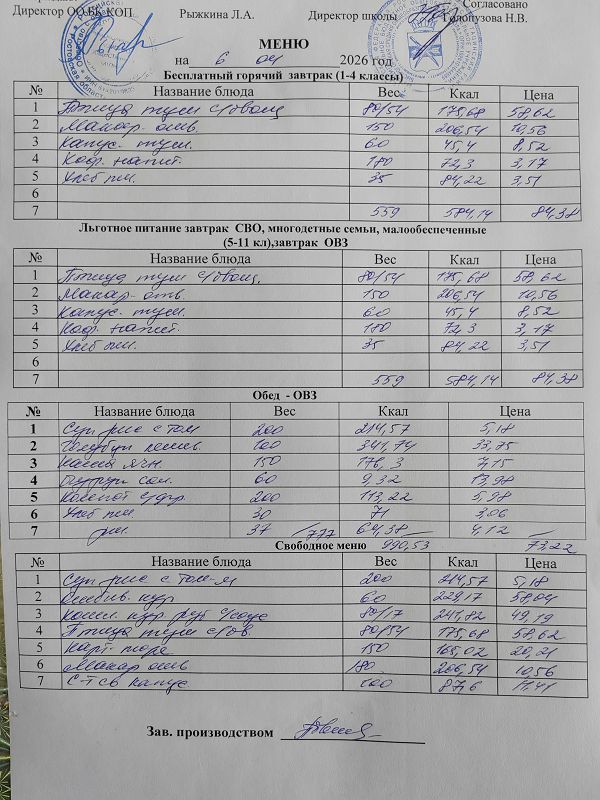 Согласовано
Директор ООБК КОП Рыжкина Л.А. Директор школы Голопузова Н.В.
МЕНЮ
на 6 04 2026 год
Бесплатный горячий завтрак (1-4 классы)
№ Название блюда Вес Ккал Цена
1 Птица туш с/овощ 80/54 175,68 58,62
2 Макар. отв. 150 206,54 10,56
3 Капус. туш. 60 45,4 8,52
4 Коф. напит. 180 72,3 3,17
5 Хлеб пш. 35 84,22 3,51
6
7 559 584,14 84,38
Льготное питание завтрак СВО, многодетные семьи, малообеспеченные
(5-11 кл),завтрак ОВЗ
№ Название блюда Вес Ккал Цена
1 Птица туш с/овощ. 80/54 175,68 58,62
2 Макар. отв. 150 206,54 10,56
3 Капус. туш. 60 45,4 8,52
4 Коф. напит. 180 72,3 3,17
5 Хлеб пш. 35 84,22 3,51
6
7 559 584,14 84,38
Обед - ОВЗ
№ Название блюда Вес Ккал Цена
1 Суп рис с том 200 214,57 5,18
2 Голубцы 100 341,74 33,75
3 Каша ячн. 150 176,3 7,15
4 Огурцы сол. 60 9,32 13,98
5 Компот с/фр. 200 113,22 5,98
6 Хлеб пш. 30 71 3,06
7 37 777 64,38 4,12
Свободное меню 990,53 73,22
№ Название блюда Вес Ккал Цена
1 Суп рис с том-м 200 214,57 5,18
2 кур 60 229,17 58,04
3 Котл. кур руб с/соус 80/17 241,82 49,19
4 Птица туш с/ов. 80/54 175,68 58,62
5 Карт. пюре 150 165,02 20,21
6 Макар отв 180 206,54 10,56
7 капус 100 87,6 11,41
Зав. производством